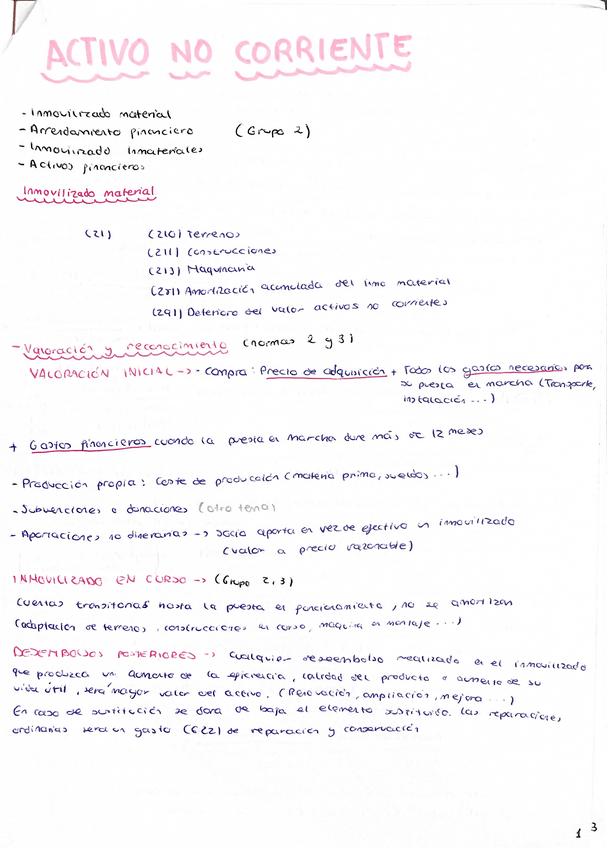 ACTIVO NO CORRIENTE
- Inmovilizado material
- Arrendamiento financiero (Grupo 2)
- Inmovilizado Inmateriales
- Activos financieros
Inmovilizado material
(21) (210) Terrenos
(211) Construcciones
(213) Maquinaria
(281) Amortización acumulada del inmo material
(291) Deterioro del valor activos no corrientes
- Valoración y reconocimiento (normas 2 y 3)
VALORACIÓN INICIAL -> - compra: Precio de adquisición + Todos los gastos necesarios para
su puesta en marcha (Transporte,
instalación ...)
+ Gastos financieros cuando la puesta en marcha dure más de 12 meses
- Producción propia: Coste de producción (materia prima, sueldos ...)
- Subvenciones o donaciones (otro tema)
- Aportaciones no dinerarias -> socio aporta en vez de efectivo un inmovilizado
(valor a precio razonable)
INMOVILIZADO EN CURSO -> (Grupo 2,3)
Cuentas transitorias hasta la puesta en funcionamiento, no se amortizan
(adaptación de terrenos, construcciones en curso, maquina en montaje ...)
DESEMBOLSOS POSTERIORES -> Cualquier desembolso realizado en el inmovilizado
que produzca un aumento de la eficiencia, calidad del producto o aumento de su
vida útil, será mayor valor del activo. (Renovación, ampliación, mejora ...)
En caso de sustitución se dará de baja el elemento sustituido. Las reparaciones
ordinarias será un gasto (622) de reparación y conservación
1 3